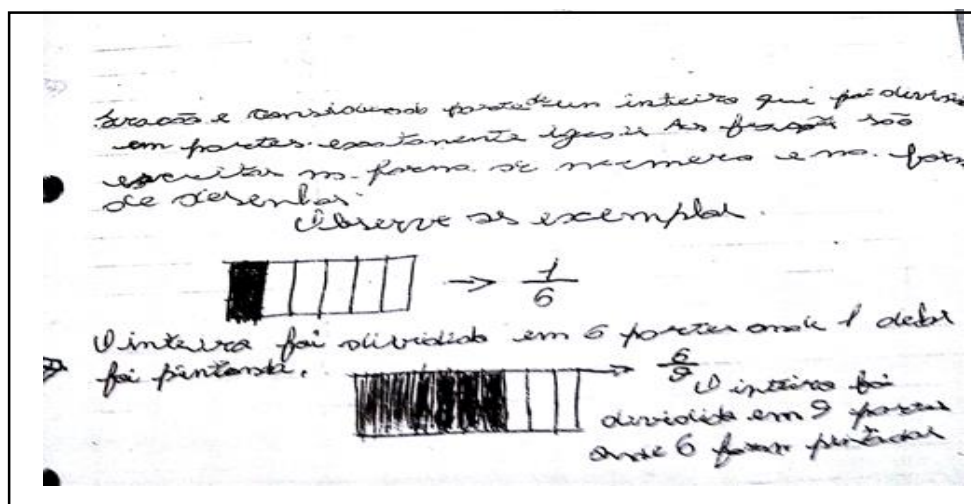 Fração e considerando parte de um inteiro que foi dividid
em partes exatamente iguais As fraçoẽs são
escritas na forma de numero e na form
de desenhos.
Observe os exemplos.
→ 1/6
O inteiro foi dividido em 6 partes onde 1 delas
foi pintanda.
→ 6/9
O inteiro foi
dividido em 9 partes
onde 6 foram pintadas